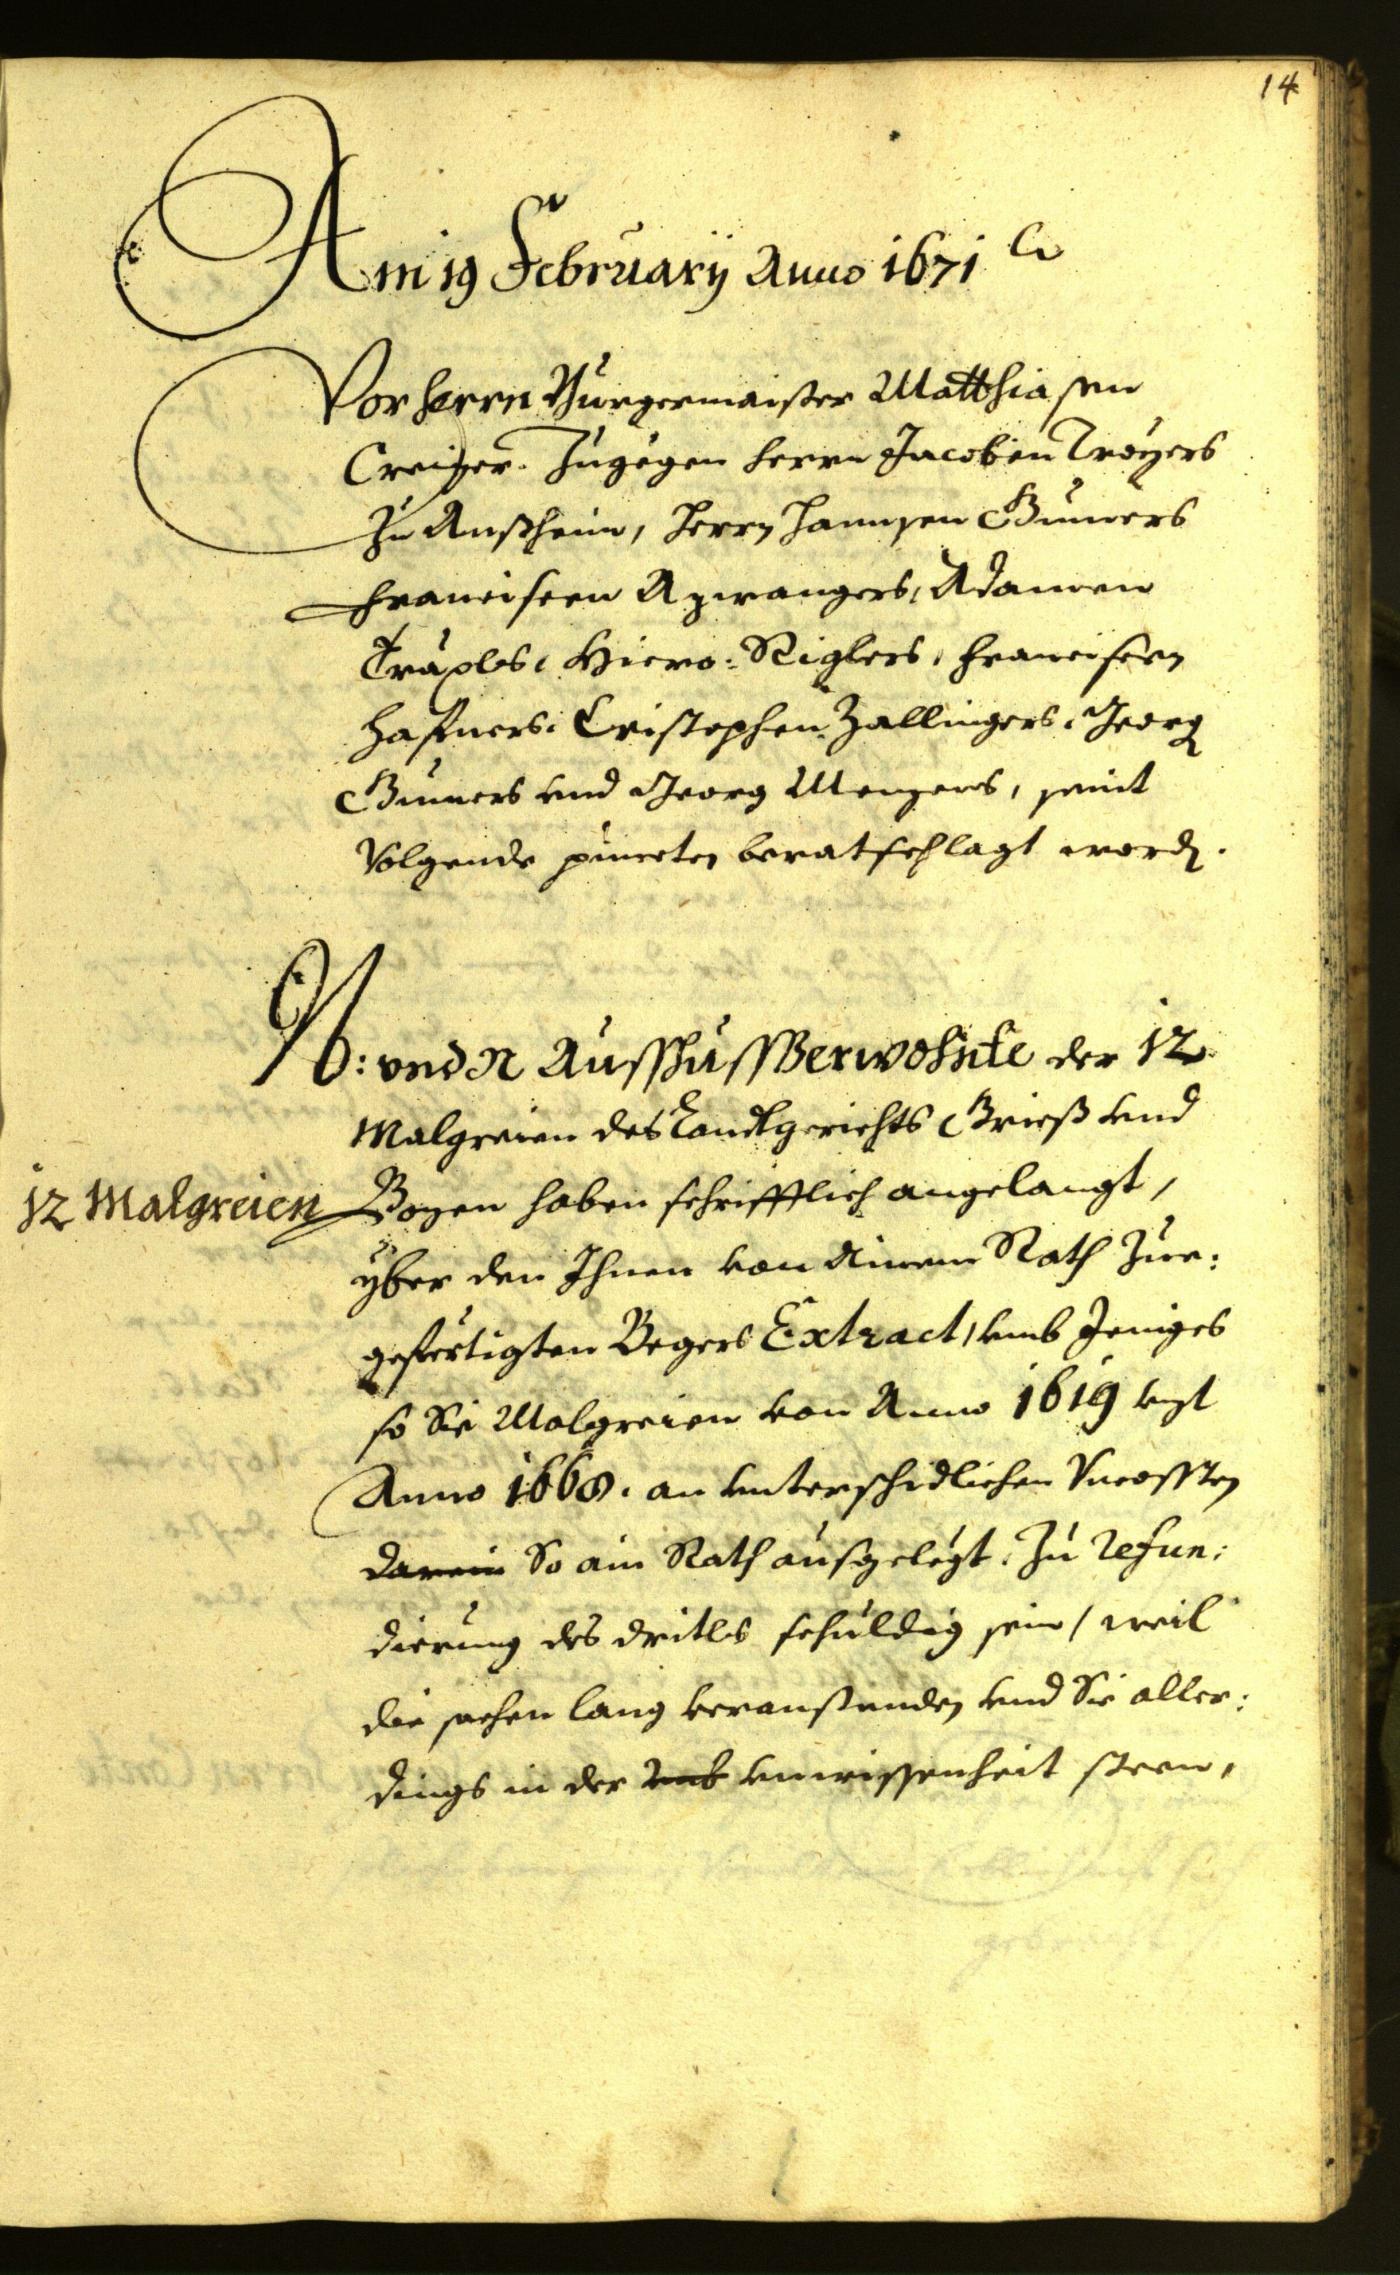 14
Am 19 February Anno 1671
Vor herrn Burgermaister Matthiasen
Creizer. Zugegen herrn Jacoben Troyers
Zu Aufheim, herrn Hannsen Gumers
Francisen Azwangers, Adamen
Träxls, Hiero: Riglers, Francisen
Hafners, Cristophen Zallingers, Georg
Gumers vnd Georg Menzens, seint
Volgende puncten beratschlagt word.
N: vnd N Ausschuss Verwohnte der 12
Malgreien des Landtgerichts Grieß vnd
12 Malgreien
Bozen haben schrifftlich angelangt,
yber den Ihnen von ainem Rath Zue:
gefertigten Begers Extract, vmb Jeniges
so Sie Malgreien von Anno 1619 vnzt
Anno 1668. an vnterschidlichen Vncossten
darein So ain Rath ausgelegt. Zu refun:
dierung des dritls schuldig sein, weil
die sachen lang veranstanden vnd Sie aller:
dings in der vnwissenheit steen,